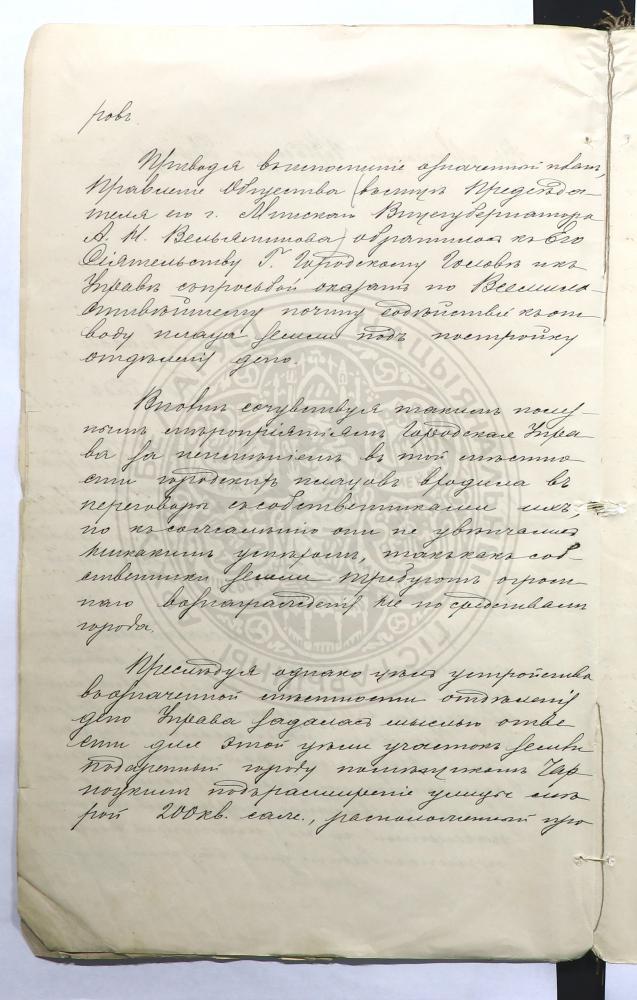 ровъ.
Приводя въ исполненіе означенный планъ,
Правленіе Общества (въ лицѣ Предсѣда-
теля по г. Минскому Вицегубернатора
А. Н. Вельяминова) обратилось къ Его
Сіятельству Г. Городскому Головѣ и къ
Управѣ съ просьбой оказать по Всемило-
стивѣйшему почину содѣйствіе къ от-
воду плаца земли подъ постройку
отдѣленія депо.
Вполнѣ сочувствуя такимъ полез-
нымъ мѣропріятіямъ Городская Упра-
ва за неимѣніемъ въ той мѣстно-
сти городскихъ плацовъ входила въ
переговоры съ собственниками ихъ,
но къ сожалѣнію они не увѣнчались
никакимъ успѣхомъ, такъ какъ соб-
ственники земли требуютъ огром-
наго вознагражденія не по средствамъ
города.
Преслѣдуя однако цѣль устройства
въ означенной мѣстности отдѣленія
депо Управа задалась мыслью отве-
сти для этой цѣли участокъ земли
подаренный городу помѣщикомъ Чар-
ноцкимъ подъ расширеніе улицы мѣ-
рой 200 кв. саж., расположенный про